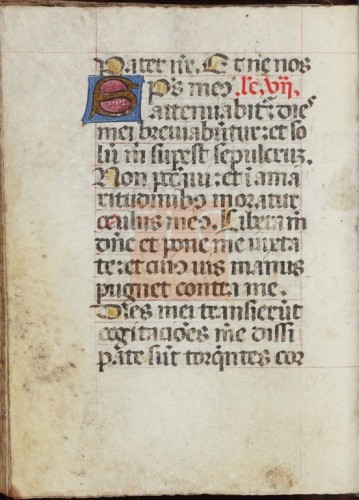 Pater nr̄. Et ne nos
Sp̄s meꝰ lc̄. vii.
attenuabit᷑: dies
mei breviabūtur: et so
lū m̄ supest sepulcrūz.
Non pc̄caui: et ī ama
ritudinibꝰ moratur
oculus meꝰ. Libera m̄
dn̄e et pone me iuxta
te: et cuiꝰ uis manus
pugnet contra me.
Dies mei transierūt
cogitacio᷑es me᷑ dissi
pate sūt torqn̄tes cor